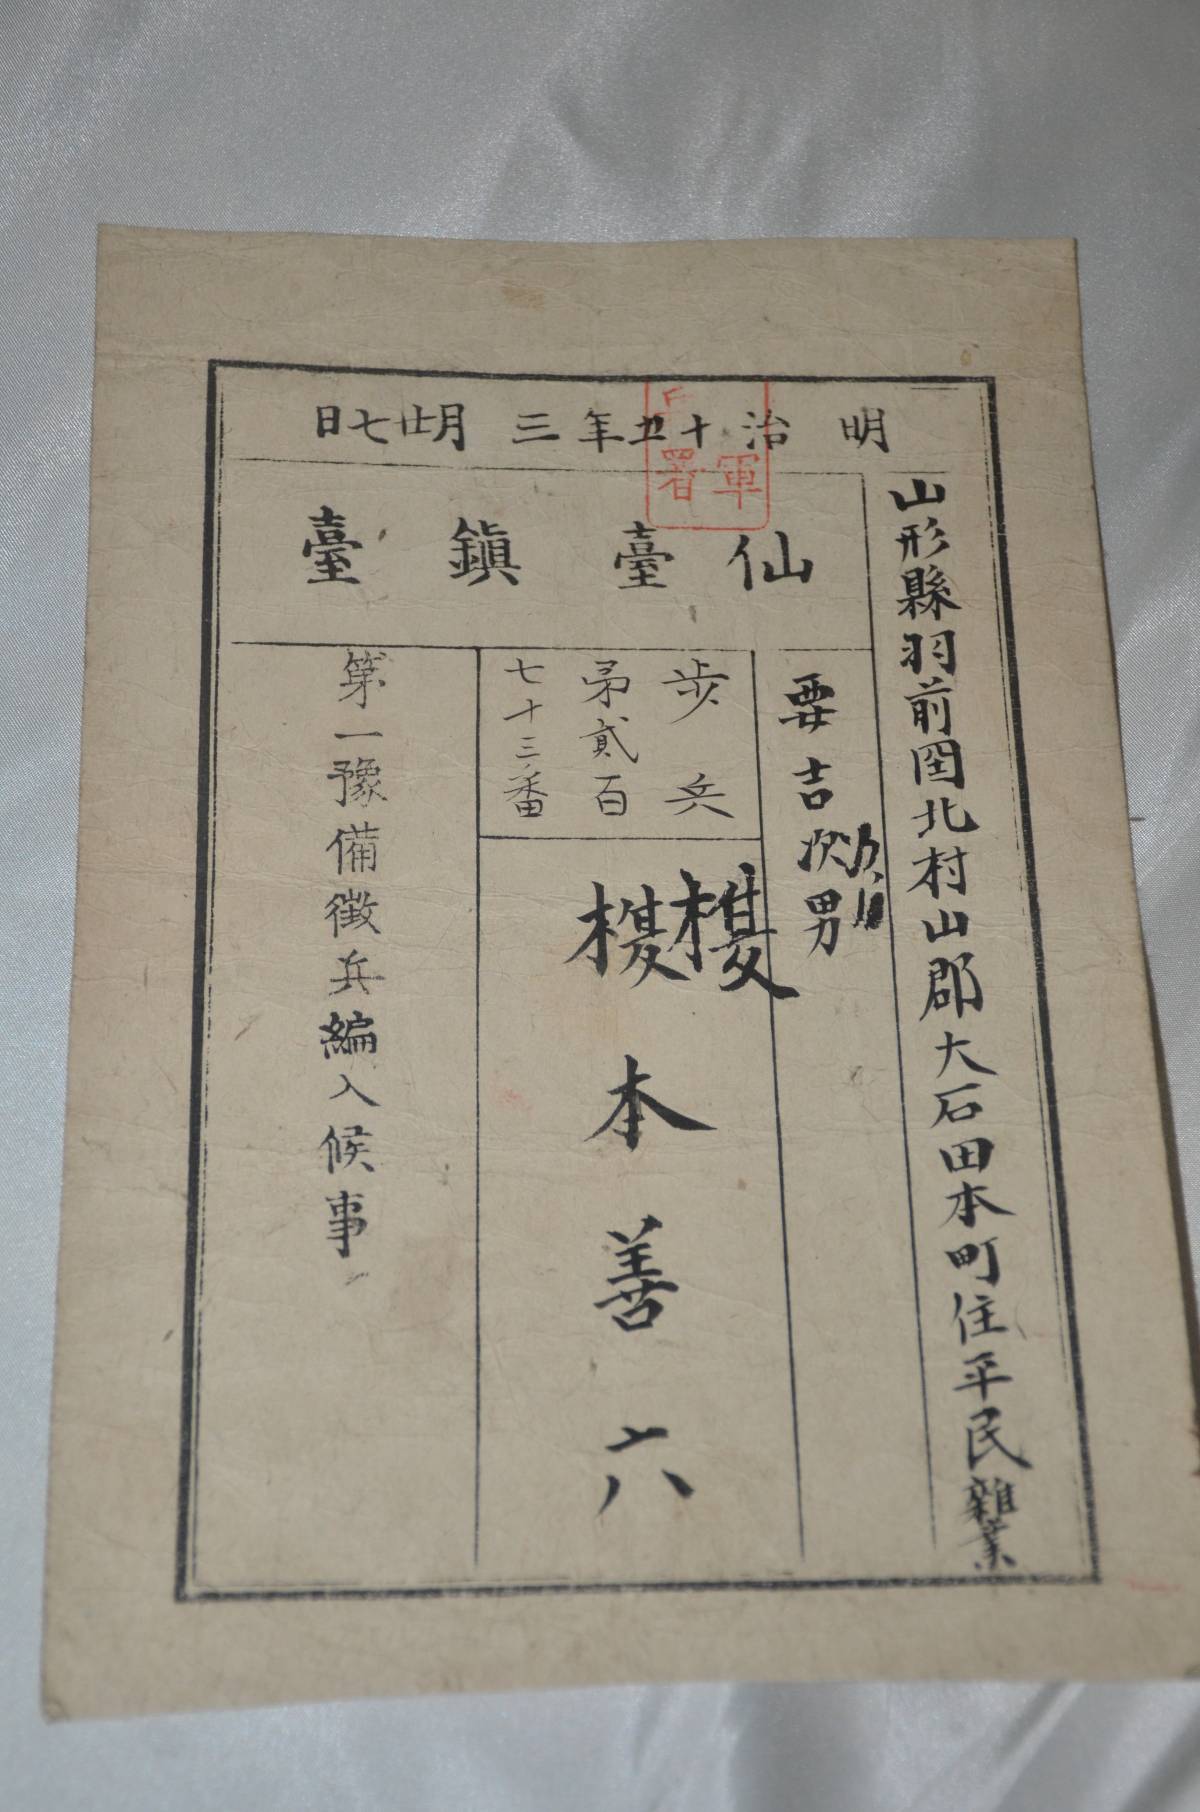 明治十五年三月廿七日
軍
署
山形縣羽前国北村山郡大石田本町住平民雜業
仙臺鎭臺
要吉次男
歩兵
第貳百
七十三番
本善六
第一豫備徴兵編入候事